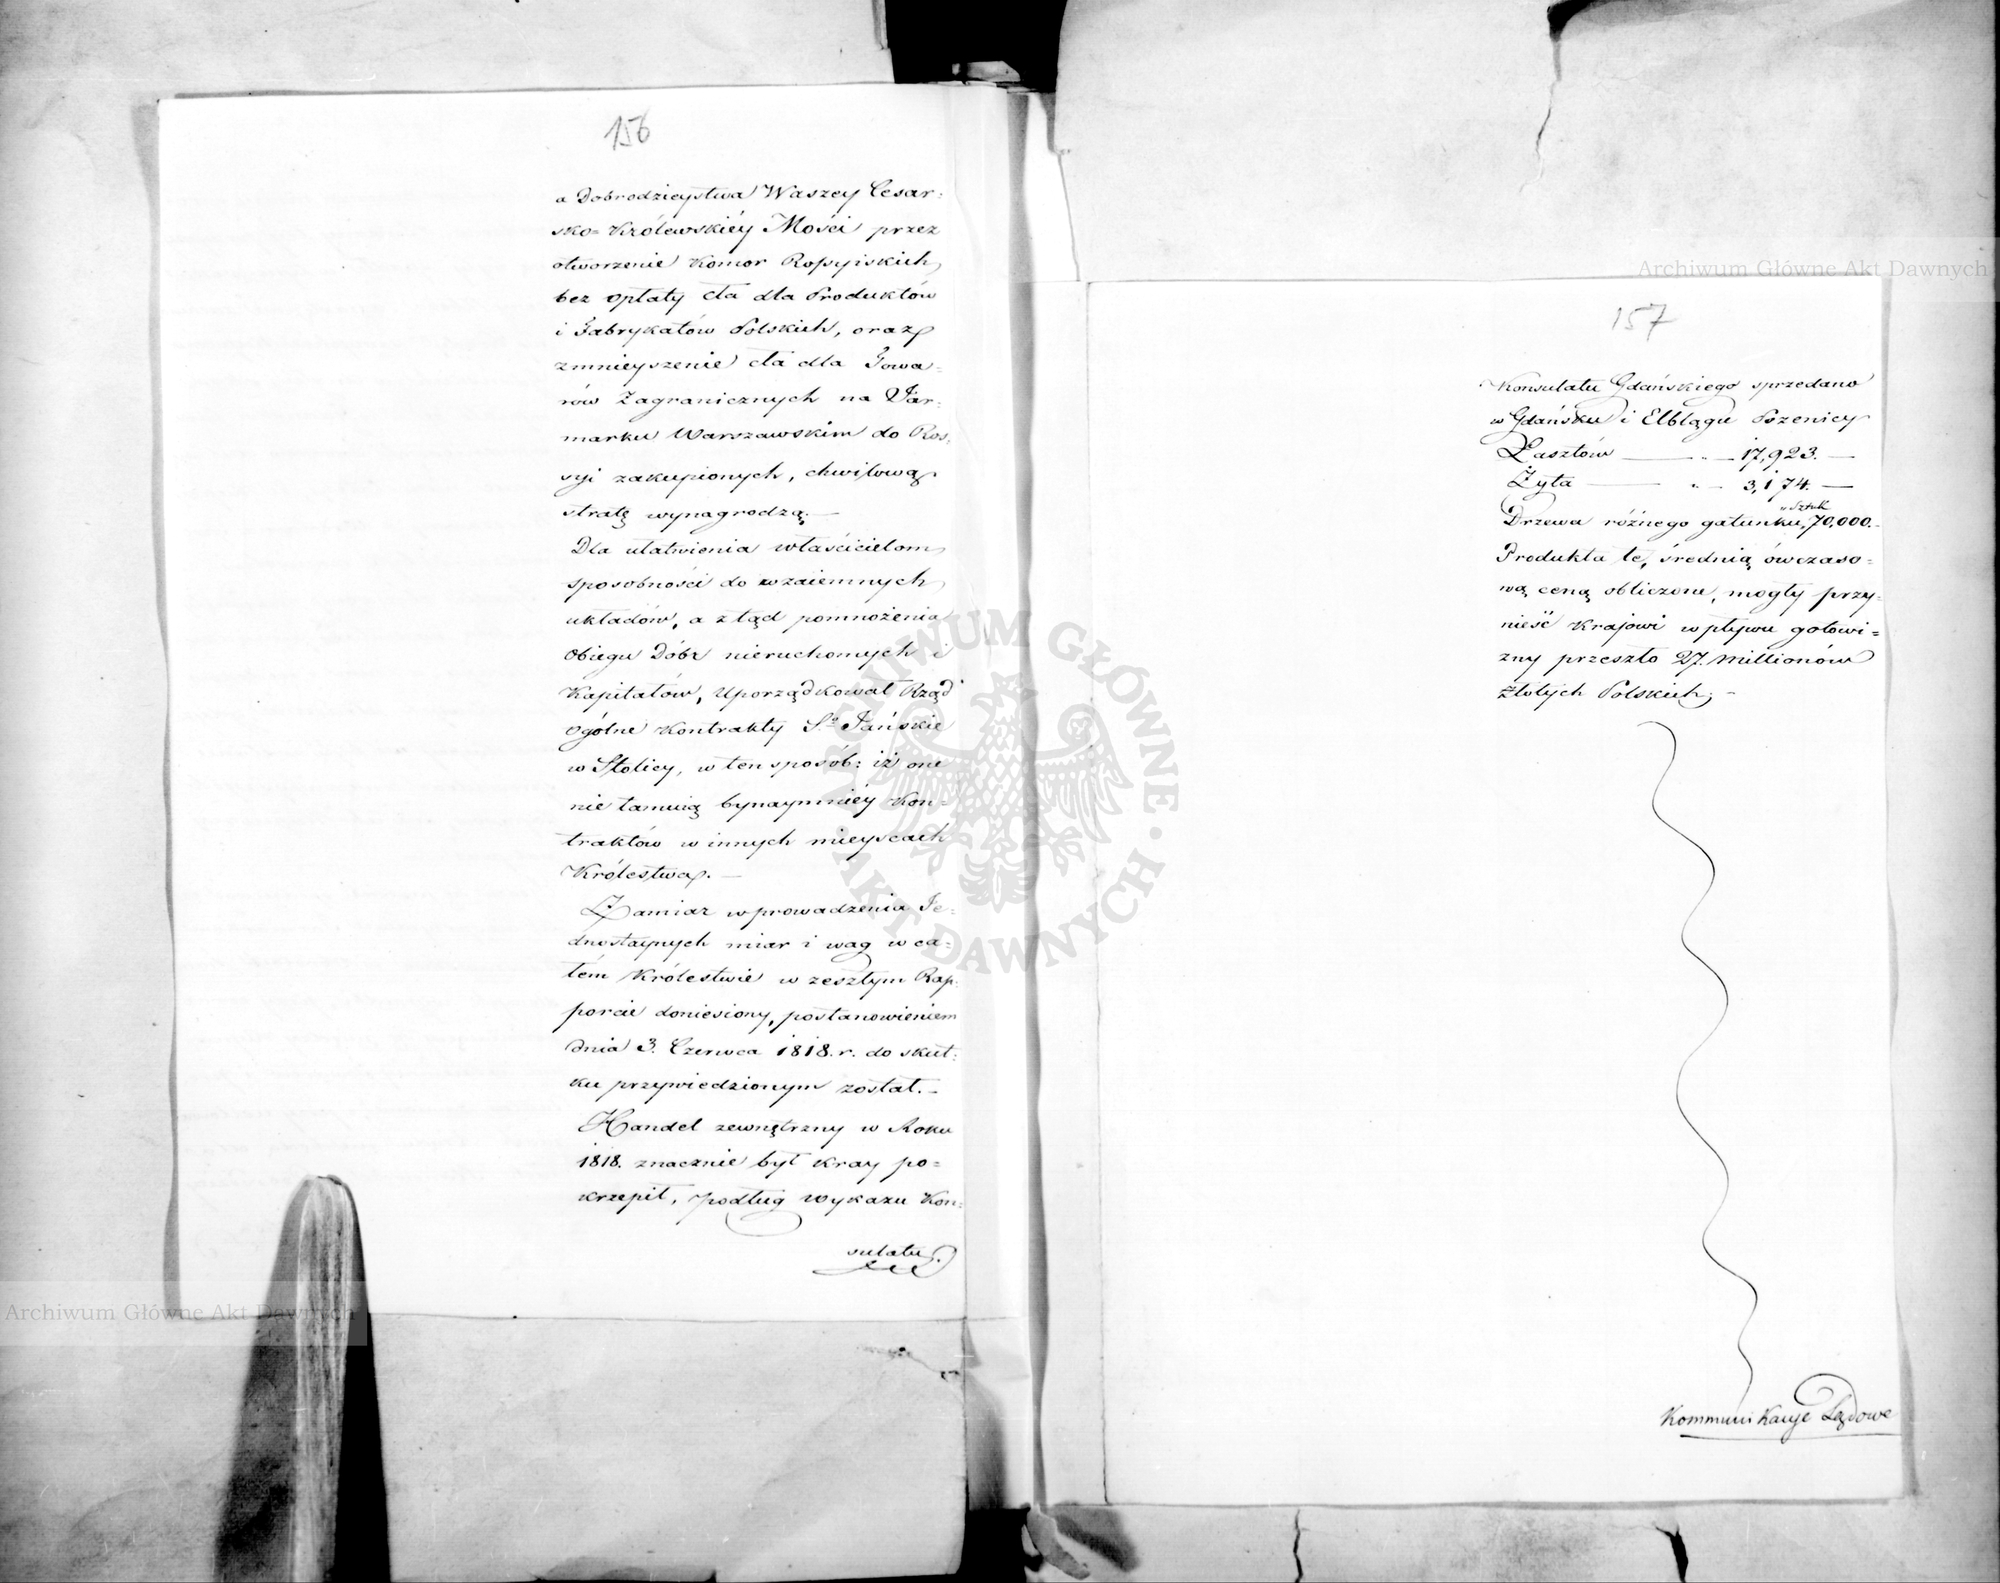 156
a Dobrodzieystwa Waszey Cesar=
sko=Królewskiéy Mości przez
otworzenie Komor Rossyiskich
bez opłaty cła dla Produktów
i Fabrykatów Polskich, oraz
zmnieyszenie cła dla Towa=
rów Zagranicznych na Jar=
marku Warszawskim do Ros=
syi zakupionych, chwilową
stratę wynagrodzą.—
Dla ułatwienia właścicielom
sposobności do wzaiemnych
układów, a ztąd pomnożenia
Obiegu Dóbr nieruchomych i
Kapitałów, Uporządkował Rząd
Ogólne Kontrakty Sto Jańskie
w Stolicy, w ten sposób: iż one
nie tamuią bynaymniéy Kon=
traktów w innych mieyscach
Królestwa.—
Zamiar wprowadzenia Je=
dnostaynych miar i wag w ca=
łém Królestwie w zeszłym Rap=
porcie doniesiony, postanowieniem
dnia 3. Czerwca 1818. r. do skut=
ku przywiedzionym został.—
Handel zewnętrzny w Roku
1818. znacznie był Kray po=
krzepił, podług wykazu Kon=
sulatu.
157
Konsulatu Gdańskiego sprzedano
w Gdańsku i Elblągu Pszenicy
Łasztów — " — 17,923. —
Żyta — " — 3,174. —
" Sztuk
Drzewa różnego gatunku, 70,000.—
Produkta te, średnią ówczaso=
wą ceną obliczone, mogły przy=
nieść Krajowi wpływu gotowi=
zny przeszło 27. Millionów
Złotych Polskich;—
Kommunikacye Lądowe
Archiwum Główne Akt Dawnych
Archiwum Główne Akt Dawnych
ARCHIWUM GŁÓWNE • AKT DAWNYCH •